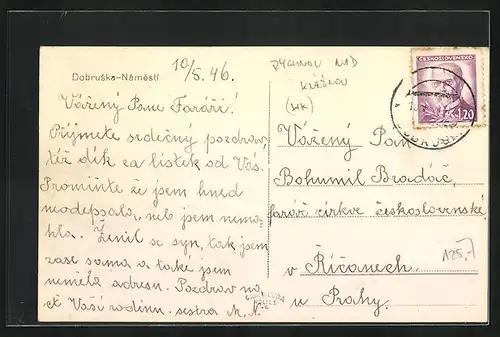 Dobruška-Náměstí
10/5. 46.
Vážený Pane Faráři!
Přijmete srdečný pozdrav
též dík za lístek od Vás.
Promiňte že jsem hned
neodepsala, neb jsem nemo-
hla. Ženil se syn, tak jsem
zase sama a také jsem
neměla adresu. Pozdrav na
ct Vaší rodinu. sestra M. N.
RYCHNOV NAD
KNĚŽNOU
(HK)
ČESKOSLOVENSKO
1.20
Vážený Pan
Bohumil Bradáč,
farář církve československé
v Říčanech
u Prahy.
125,-